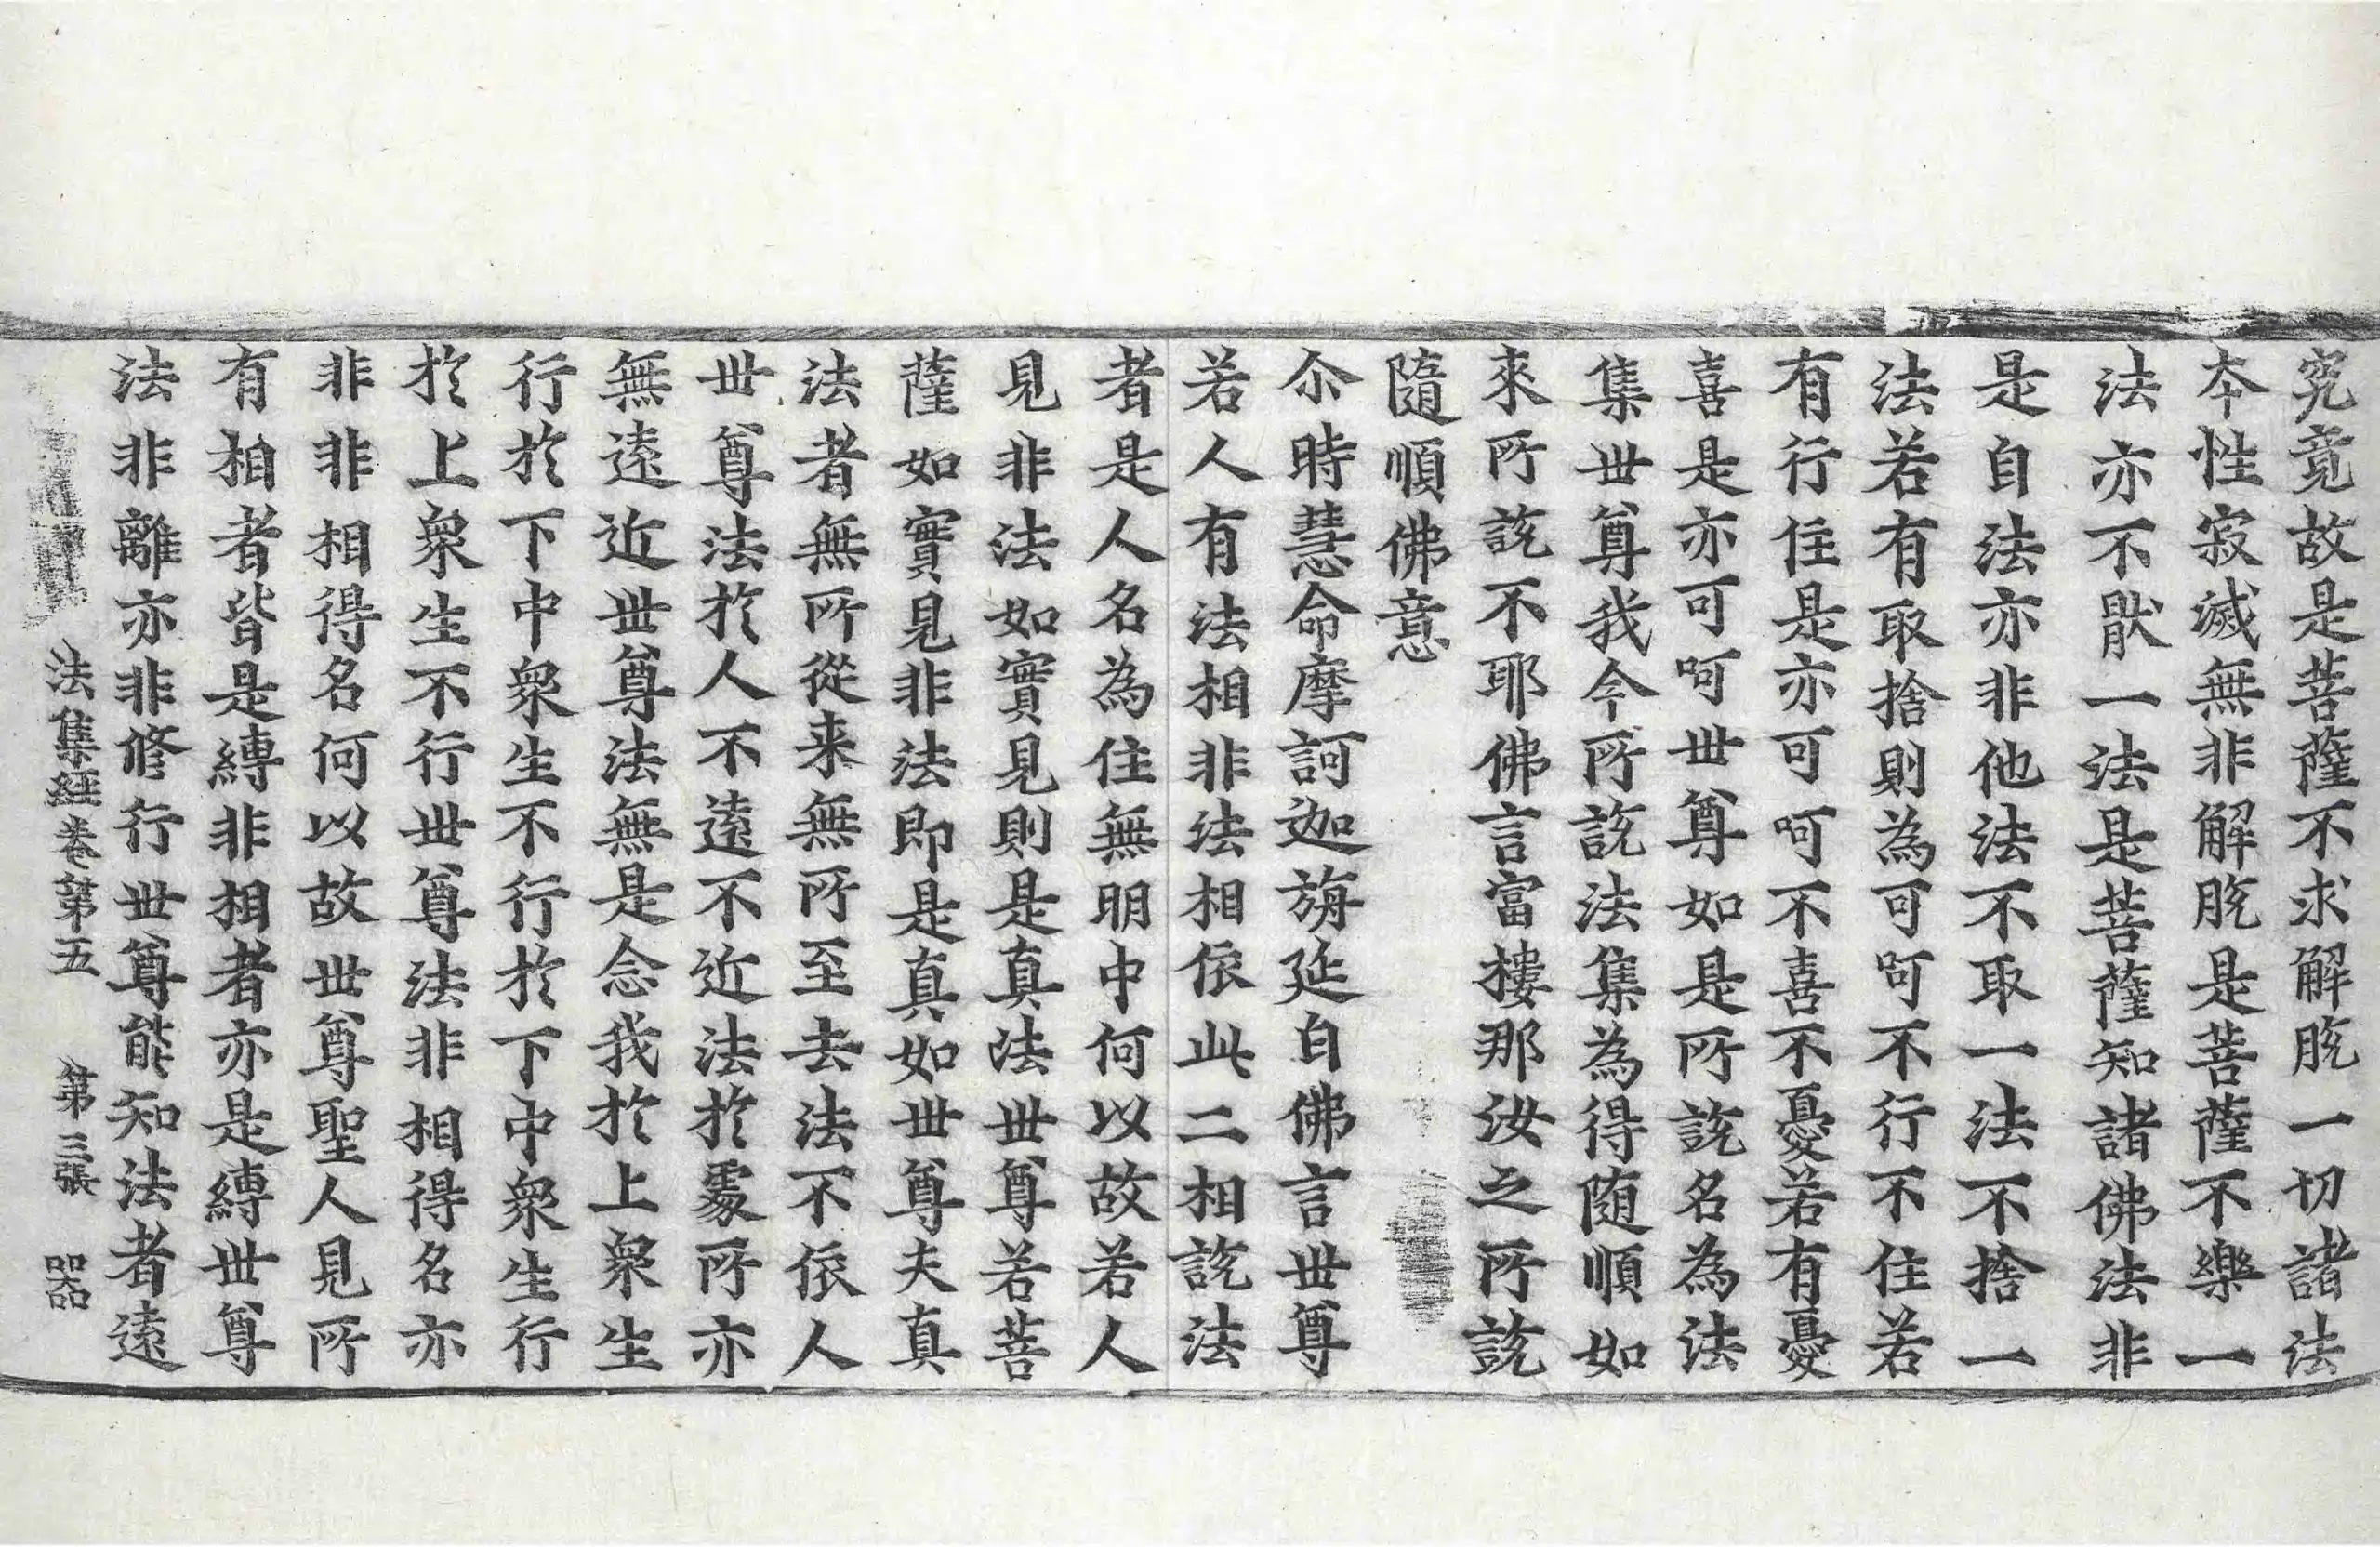 究竟故是菩薩不求解脫一切諸法
夲性寂滅無非解脫是菩薩不樂一
法亦不猒一法是菩薩知諸佛法非
是自法亦非他法不取一法不捨一
法若有取捨則為可呵不行不住若
有行住是亦可呵不喜不憂若有憂
喜是亦可呵丗尊如是所說名為法
集丗尊我今所說法集為得随順如
來所說不耶佛言富樓那汝之所說
隨順佛意
尒時慧命摩訶迦旃延白佛言丗尊
若人有法相非法相依此二相說法
者是人名為住無明中何以故若人
見非法如實見則是真法丗尊若菩
薩如實見非法即是真如丗尊夫真
法者無所從来無所至去法不依人
丗尊法於人不遠不近法於處所亦
無遠近丗尊法無是念我於上衆生
行於下中衆生不行於下中衆生行
於上衆生不行丗尊法非相得名亦
非非相得名何以故丗尊聖人見所
有相者皆是縛非相者亦是縛丗尊
法非離亦非修行丗尊能知法者遠
法集経卷第五　第三張　器